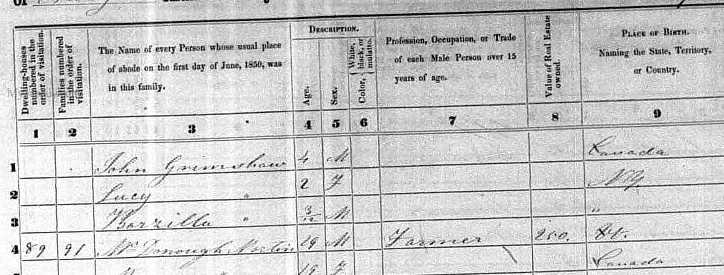 DESCRIPTION.
Dwelling-houses numbered in the order of visitation.
Families numbered in the order of visitation.
The Name of every Person whose usual place of abode on the first day of June, 1850, was in this family.
Age.
Sex.
Color, White, black, or mulatto.
Profession, Occupation, or Trade of each Male Person over 15 years of age.
Value of Real Estate owned.
PLACE OF BIRTH. Naming the State, Territory, or Country.
1 2 3 4 5 6 7 8 9
1 John Grimshaw 4 M Canada
2 Lucy " 2 F NY
3 Barzilla " 3/12 M "
4 89 91 McDonough 19 M Farmer 200. Vt.
19 F Canada